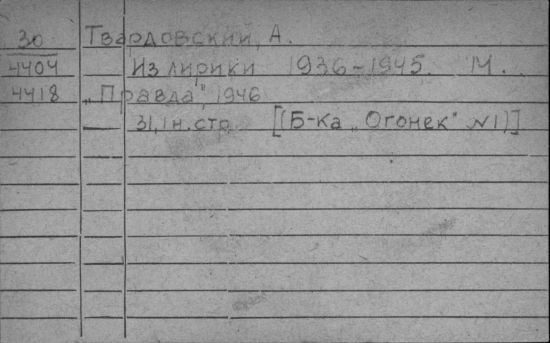 30 Твардовский, А.
4404 Из лирики 1936-1945. М.
4418 „Правда", 1946
31, 1 н. стр [(Б-ка „Огонек" №1)]